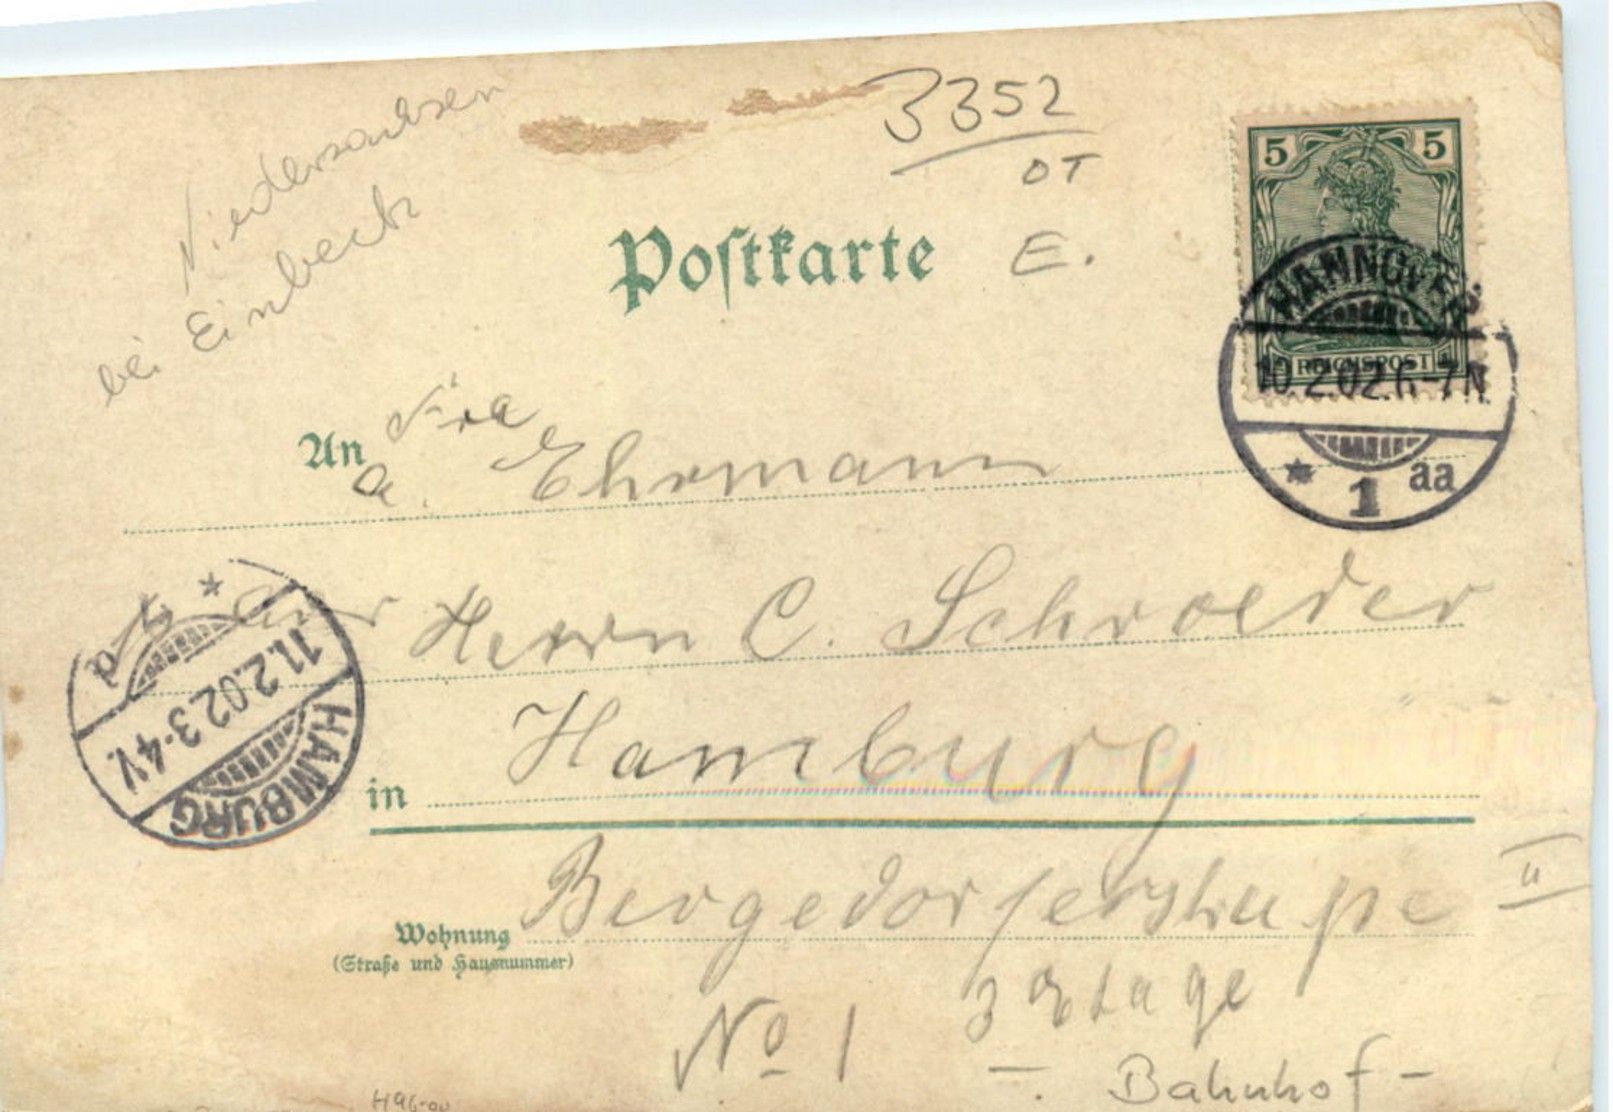 3352
OT
E.
Niedersachsen
bei Einbeck
Postkarte
5 5
REICHSPOST
HANNOVER
10.2.02.6-7N
* 1 aa
An Fra
a. Ehrmann
Herrn C. Schroeder
* 1 d
11.2.02.3-4V.
HAMBURG
in Hamburg
Wohnung Bergedorferstraße II
(Straße und Hausnummer)
No 1 3 Etage
- Bahnhof -